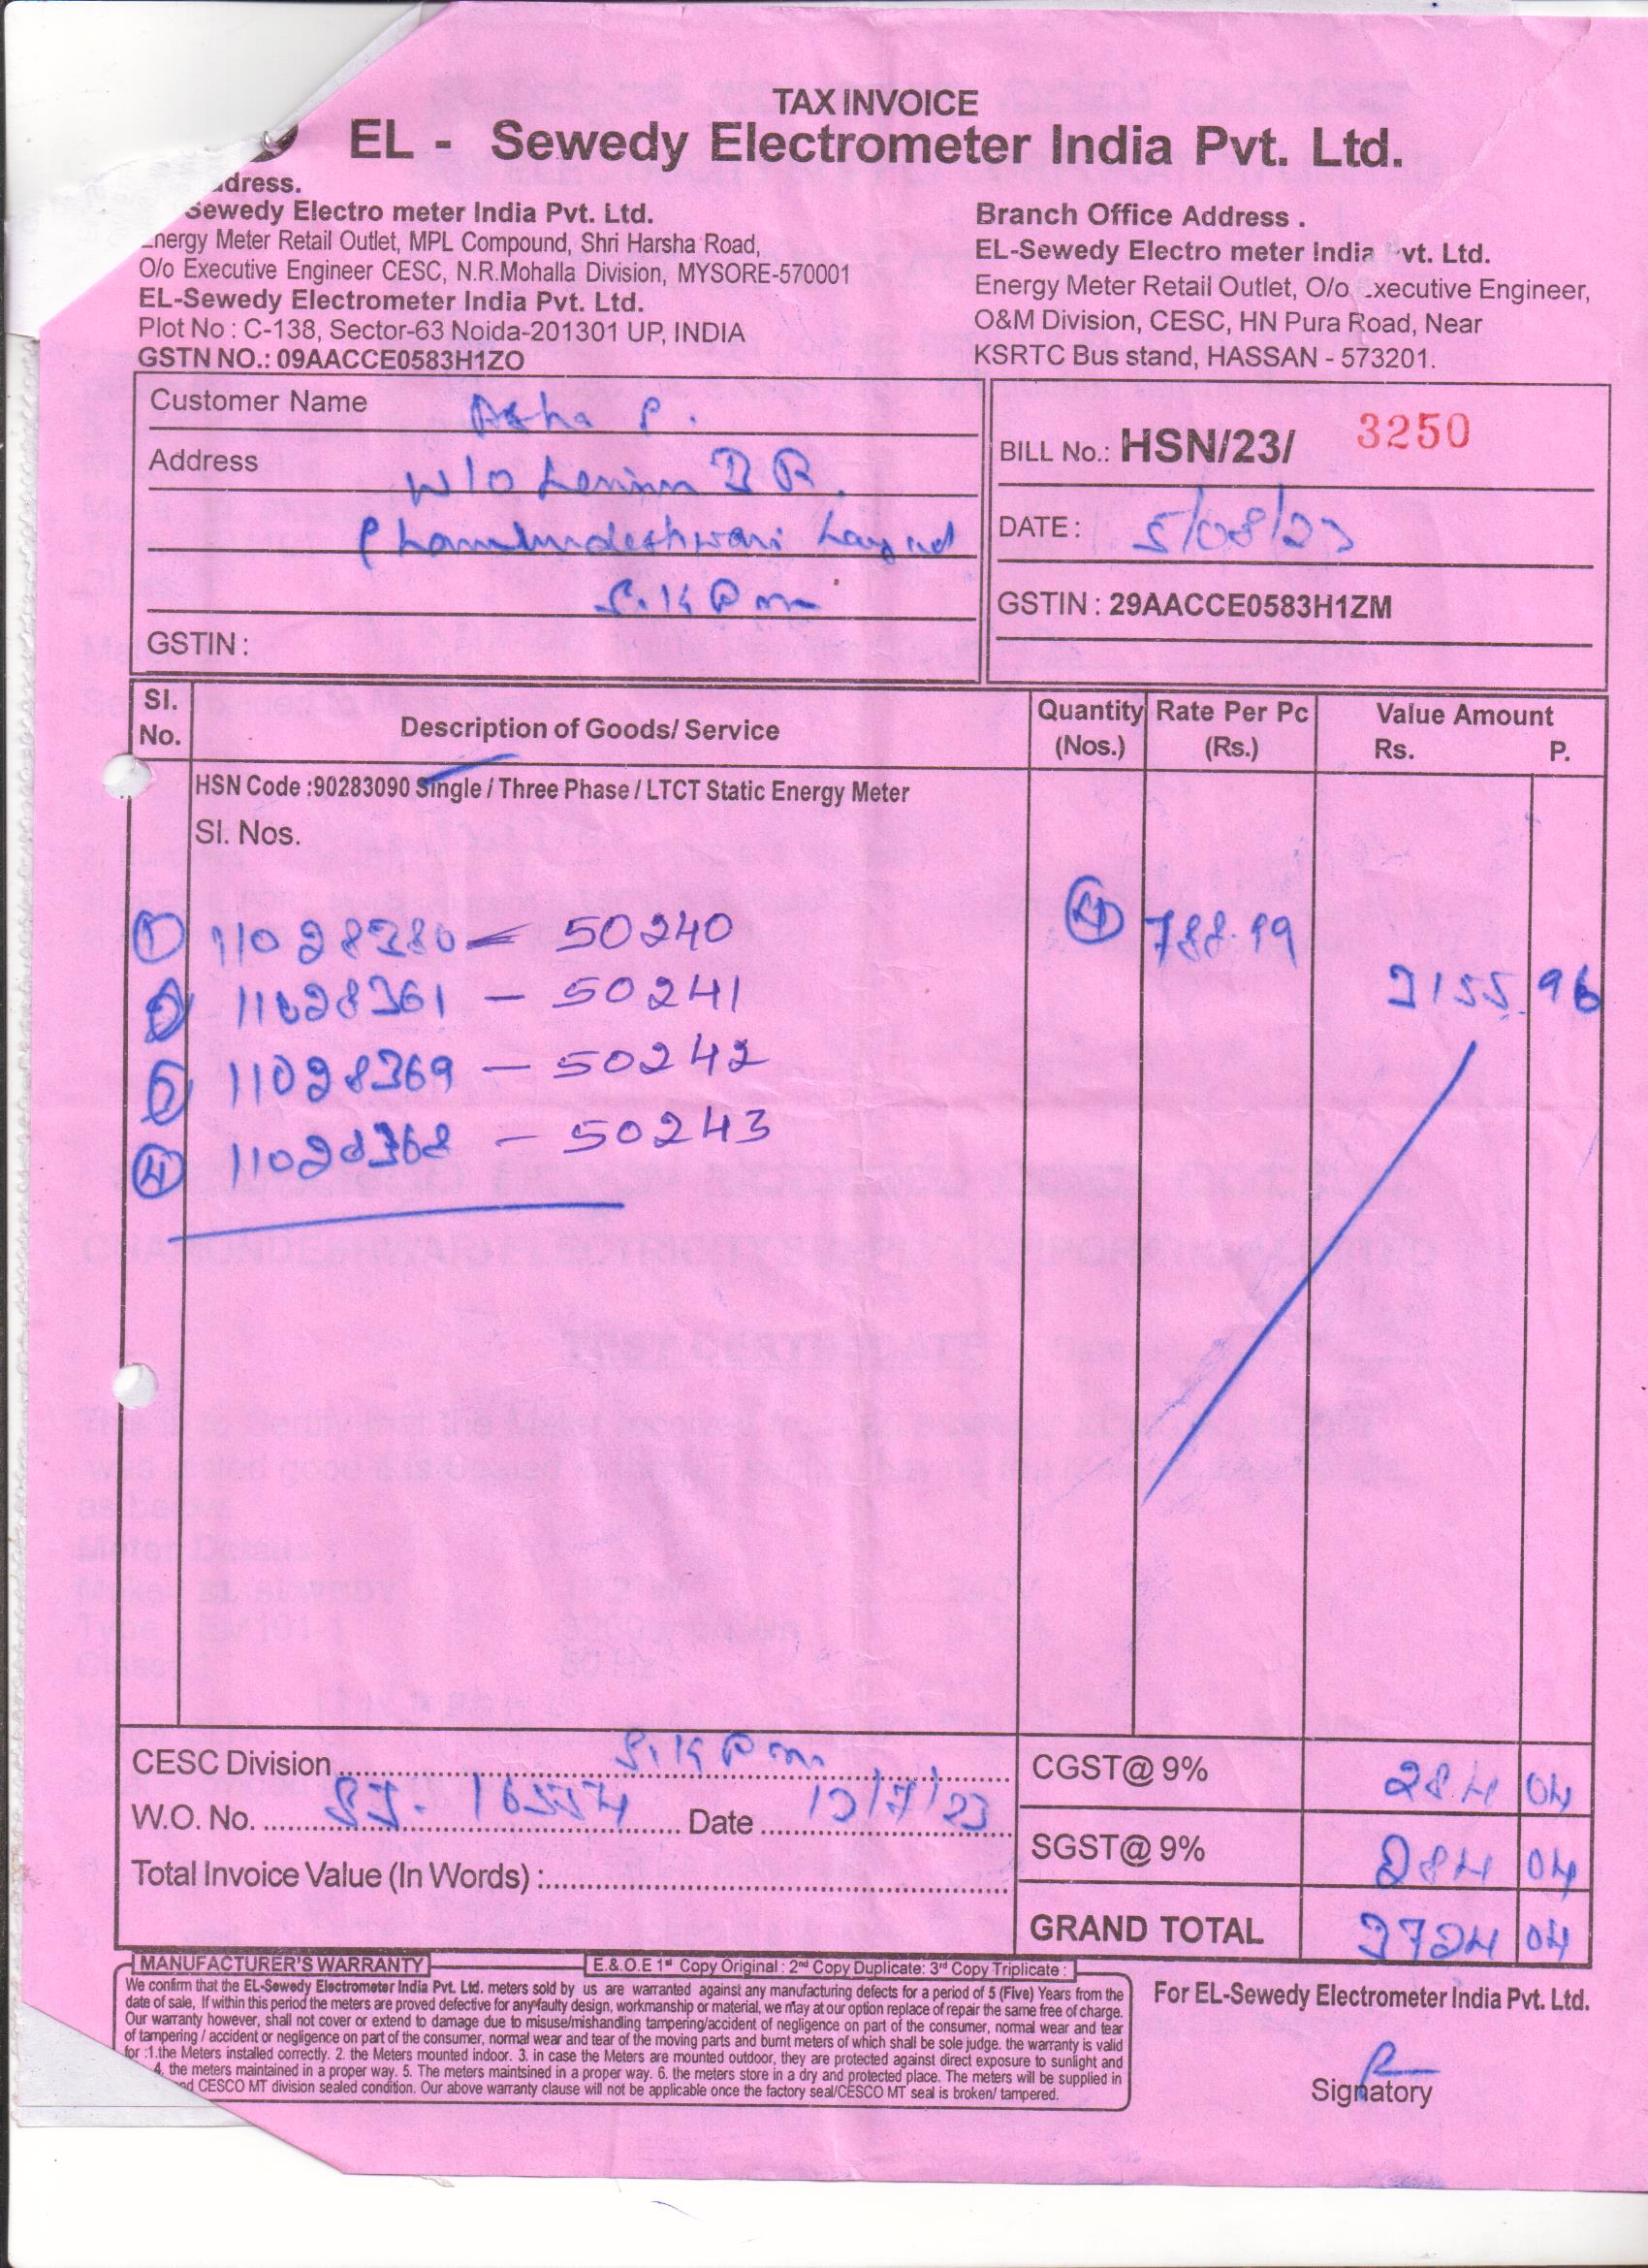 TAX INVOICE
EL - Sewedy Electrometer India Pvt. Ltd.
dress.
Sewedy Electro meter India Pvt. Ltd.
Energy Meter Retail Outlet, MPL Compound, Shri Harsha Road,
O/o Executive Engineer CESC, N.R.Mohalla Division, MYSORE-570001
EL-Sewedy Electrometer India Pvt. Ltd.
Plot No : C-138, Sector-63 Noida-201301 UP, INDIA
GSTN NO.: 09AACCE0583H1ZO
Branch Office Address .
EL-Sewedy Electro meter India Pvt. Ltd.
Energy Meter Retail Outlet, O/o Executive Engineer,
O&M Division, CESC, HN Pura Road, Near
KSRTC Bus stand, HASSAN - 573201.
Customer Name Asha P.
Address W/O Lenin B R.
Chamundeshwari Layout
S.K Pm
GSTIN :
BILL No.: HSN/23/ 3250
DATE : 5/08/23
GSTIN : 29AACCE0583H1ZM
Sl. No. Description of Goods/ Service Quantity (Nos.) Rate Per Pc (Rs.) Value Amount Rs. P.
HSN Code :90283090 Single / Three Phase / LTCT Static Energy Meter
Sl. Nos.
1 11028380 - 50240 4 788.99
2 11028361 - 50241 3155 96
3 11028369 - 50242
4 11028368 - 50243
CESC Division S.K Pm. CGST@ 9% 284 04
W.O. No. Date SGST@ 9% 284 04
Total Invoice Value (In Words) :
GRAND TOTAL 3724 04
MANUFACTURER'S WARRANTY E.& O.E 1st Copy Original : 2nd Copy Duplicate: 3rd Copy Triplicate :
We confirm that the EL-Sewedy Electrometer India Pvt. Ltd. meters sold by us are warranted against any manufacturing defects for a period of 5 (Five) Years from the
date of sale, If within this period the meters are proved defective for any faulty design, workmanship or material, we may at our option replace of repair the same free of charge.
Our warranty however, shall not cover or extend to damage due to misuse/mishandling tampering/accident of negligence on part of the consumer, normal wear and tear
of tampering / accident or negligence on part of the consumer, normal wear and tear of the moving parts and burnt meters of which shall be sole judge. the warranty is valid
for :1.the Meters installed correctly. 2. the Meters mounted indoor. 3. in case the Meters are mounted outdoor, they are protected against direct exposure to sunlight and
4. the meters maintained in a proper way. 5. The meters maintsined in a proper way. 6. the meters store in a dry and protected place. The meters will be supplied in
CESCO MT division sealed condition. Our above warranty clause will not be applicable once the factory seal/CESCO MT seal is broken/ tampered.
For EL-Sewedy Electrometer India Pvt. Ltd.
Signatory